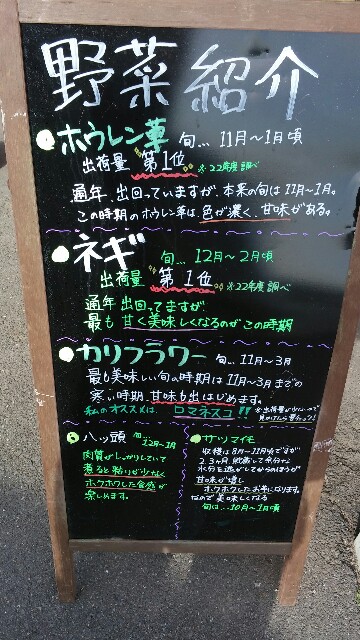 野菜紹介
ホウレン草 旬… 11月〜1月頃
出荷量 第1位 ※22年度調べ
通年、出回っていますが、本来の旬は11月〜1月。
この時期のホウレン草は、色が濃く、甘味がある。
ネギ 旬… 12月〜2月頃
出荷量 第1位 ※22年度調べ
通年出回ってますが
最も甘く美味しくなるのがこの時期
カリフラワー 旬…11月〜3月
最も美味しい旬の時期は11月〜3月までの
寒い時期。甘味も出はじめます。
私のオススメは ロマネスコ!!
※出荷量が少ないので
見かけたら要チェック!
八ッ頭 旬…12月〜1月
肉質がしっかりしていて
煮ると粘りが少なく
ホクホクした食感が
楽しめます。
サツマイモ
収穫は8月〜11月頃ですが
2、3ヶ月貯蔵して余分な
水分を逃がしてからのほうが
甘味が増し
ホクホクしたお芋になります。
なので美味しくなる
旬は…10月〜1月頃